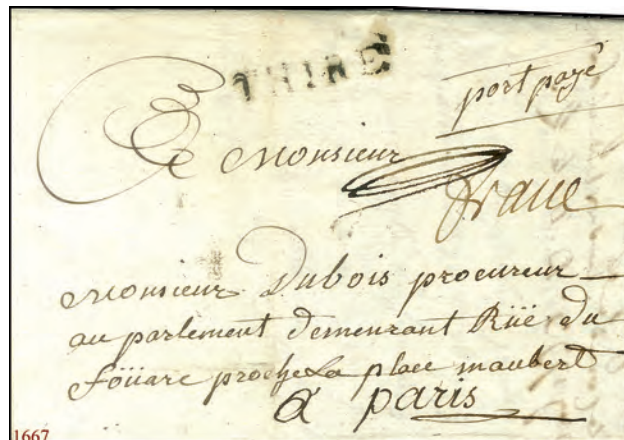 THIRE
port payé
A Monsieur
franc
Monsieur Dubois procureur
au parlement demeurant Rüe du
foüare proche la place maubert
a paris
1667